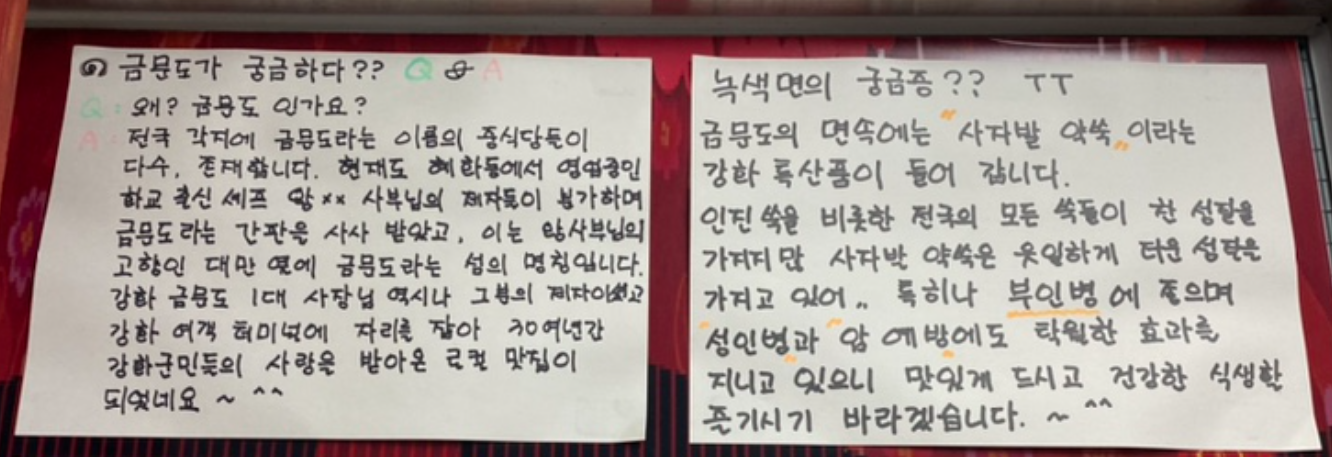 금문도가 궁금하다?? Q & A
Q : 왜? 금문도 인가요?
A : 전국 각지에 금문도라는 이름의 중식당들이
다수. 존재합니다. 현재도 혜화동에서 영업중인
화교 출신 셰프 왕×× 사부님의 제자들이 분가하며
금문도라는 간판을 사사 받았고, 이는 왕사부님의
고향인 대만 옆에 금문도라는 섬의 명칭입니다.
강화 금문도 1대 사장님 역시나 그분의 제자이셨고
강화 여객 터미널에 자리를 잡아 30여년간
강화군민들의 사랑을 받아온 로컬 맛집이
되엇네요 ~ ^^
녹색면의 궁금증?? ㅜㅜ
금문도의 면속에는 "사자발 약쑥"이라는
강화 특산품이 들어 갑니다.
인진쑥을 비롯한 전국의 모든 쑥들이 찬 성질을
가지지만 사자발 약쑥은 유일하게 더운 성질을
가지고 있어.. 특히나 부인병에 좋으며
"성인병"과 "암 예방"에도 탁월한 효과를
지니고 있으니 맛있게 드시고 건강한 식생활
즐기시기 바라겠습니다. ~ ^^